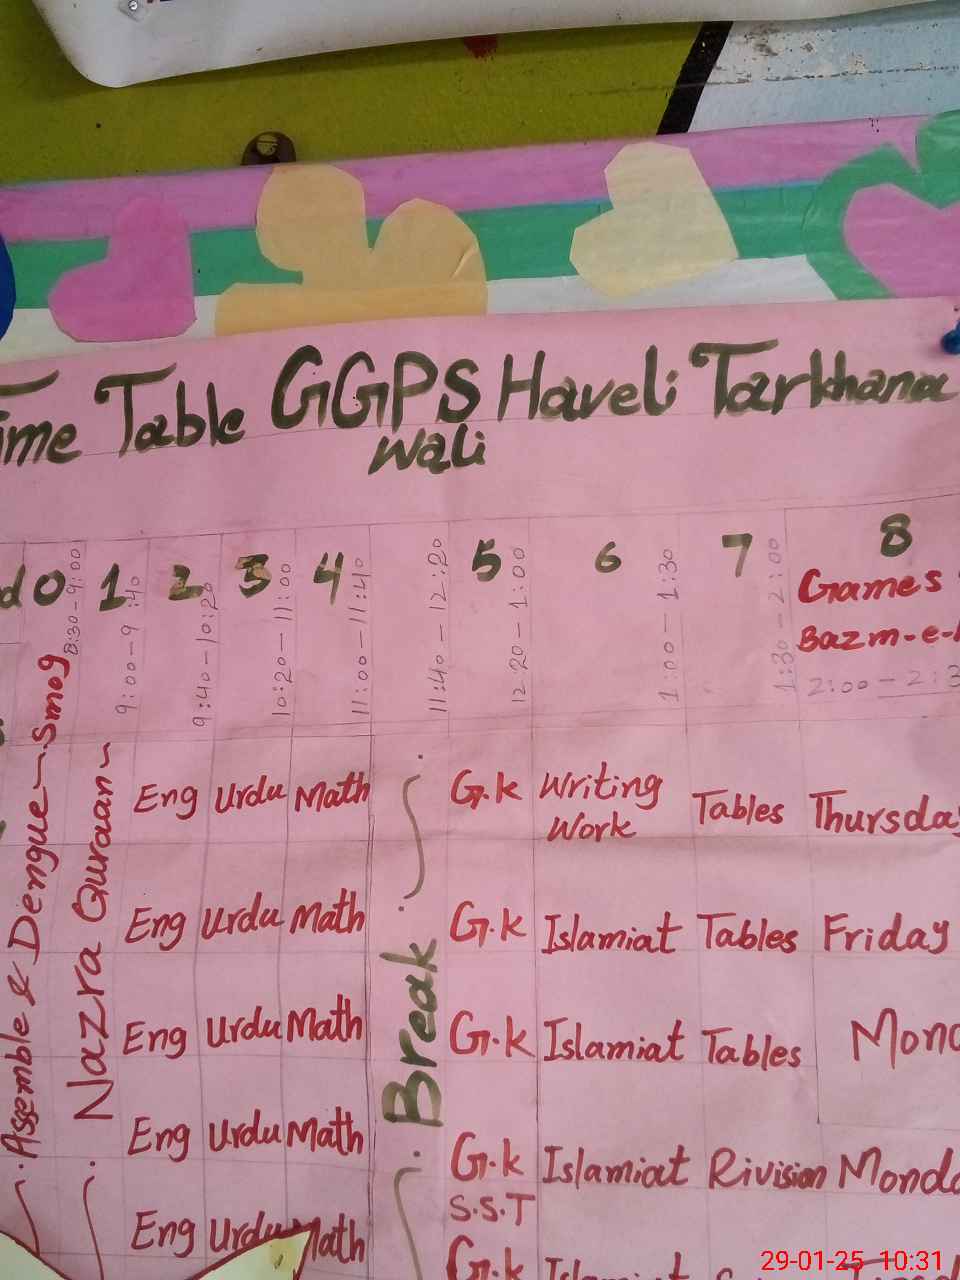 ime Table GGPS Haveli Tarkhana
Wali
d 0 1 2 3 4 5 6 7 8
8:30-9:00 9:00-9:40 9:40-10:20 10:20-11:00 11:00-11:40 11:40-12:20 12:20-1:00 1:00-1:30 1:30-2:00
Games
Bazm-e-
2:00-2:3
Assemble & Dengue-Smog
Nazra Quraan
Break
Eng Urdu Math G.k Writing Work Tables Thursday
Eng Urdu Math G.k Islamiat Tables Friday
Eng Urdu Math G.k Islamiat Tables Mon
Eng Urdu Math G.k Islamiat Rivision Mond
S.S.T
Eng Urdu Math G.k
29-01-25 10:31